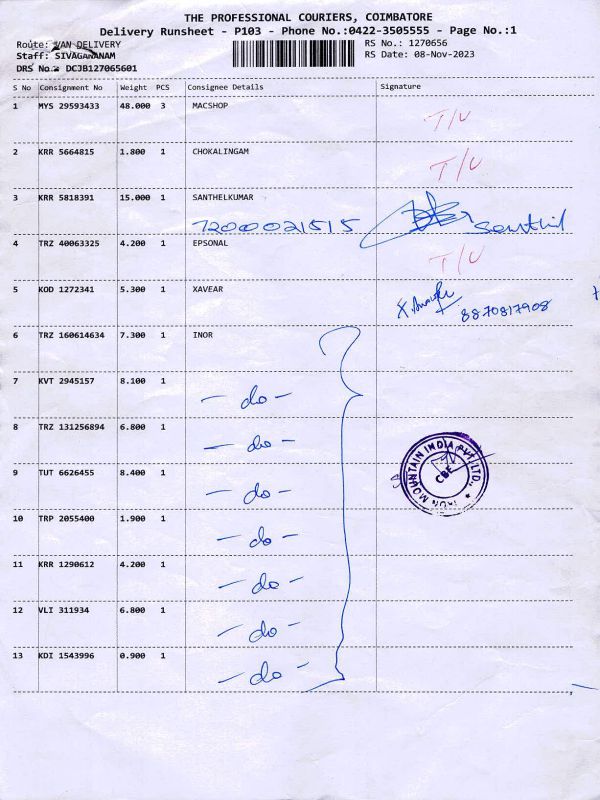 THE PROFESSIONAL COURIERS, COIMBATORE
Delivery Runsheet - P103 - Phone No.:0422-3505555 - Page No.:1
Route: VAN DELIVERY RS No.: 1270656
Staff: SIVAGNANAM RS Date: 08-Nov-2023
DRS No.: DCJB127065601
S No Consignment No Weight PCS Consignee Details Signature
1 MYS 29593433 48.000 3 MACSHOP T/U
2 KRR 5664815 1.800 1 CHOKALINGAM T/U
3 KRR 5818391 15.000 1 SANTHELKUMAR
7200021515 Senthil
4 TRZ 40063325 4.200 1 EPSONAL T/U
5 KOD 1272341 5.300 1 XAVEAR
8870817908
6 TRZ 160614634 7.300 1 INOR
7 KVT 2945157 8.100 1 - do -
8 TRZ 131256894 6.800 1 - do -
9 TUT 6626455 8.400 1 - do -
10 TRP 2055400 1.900 1 - do -
11 KRR 1290612 4.200 1 - do -
12 VLI 311934 6.800 1 - do -
13 KDI 1543996 0.900 1 - do -
MOUNTAIN INDIA PVT LTD.
CBE